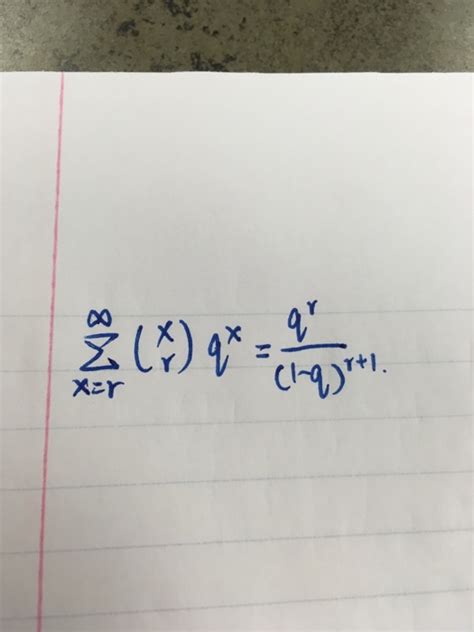 $\sum_{x=r}^{\infty} \binom{x}{r} q^x = \frac{q^r}{(1-q)^{r+1}}.$